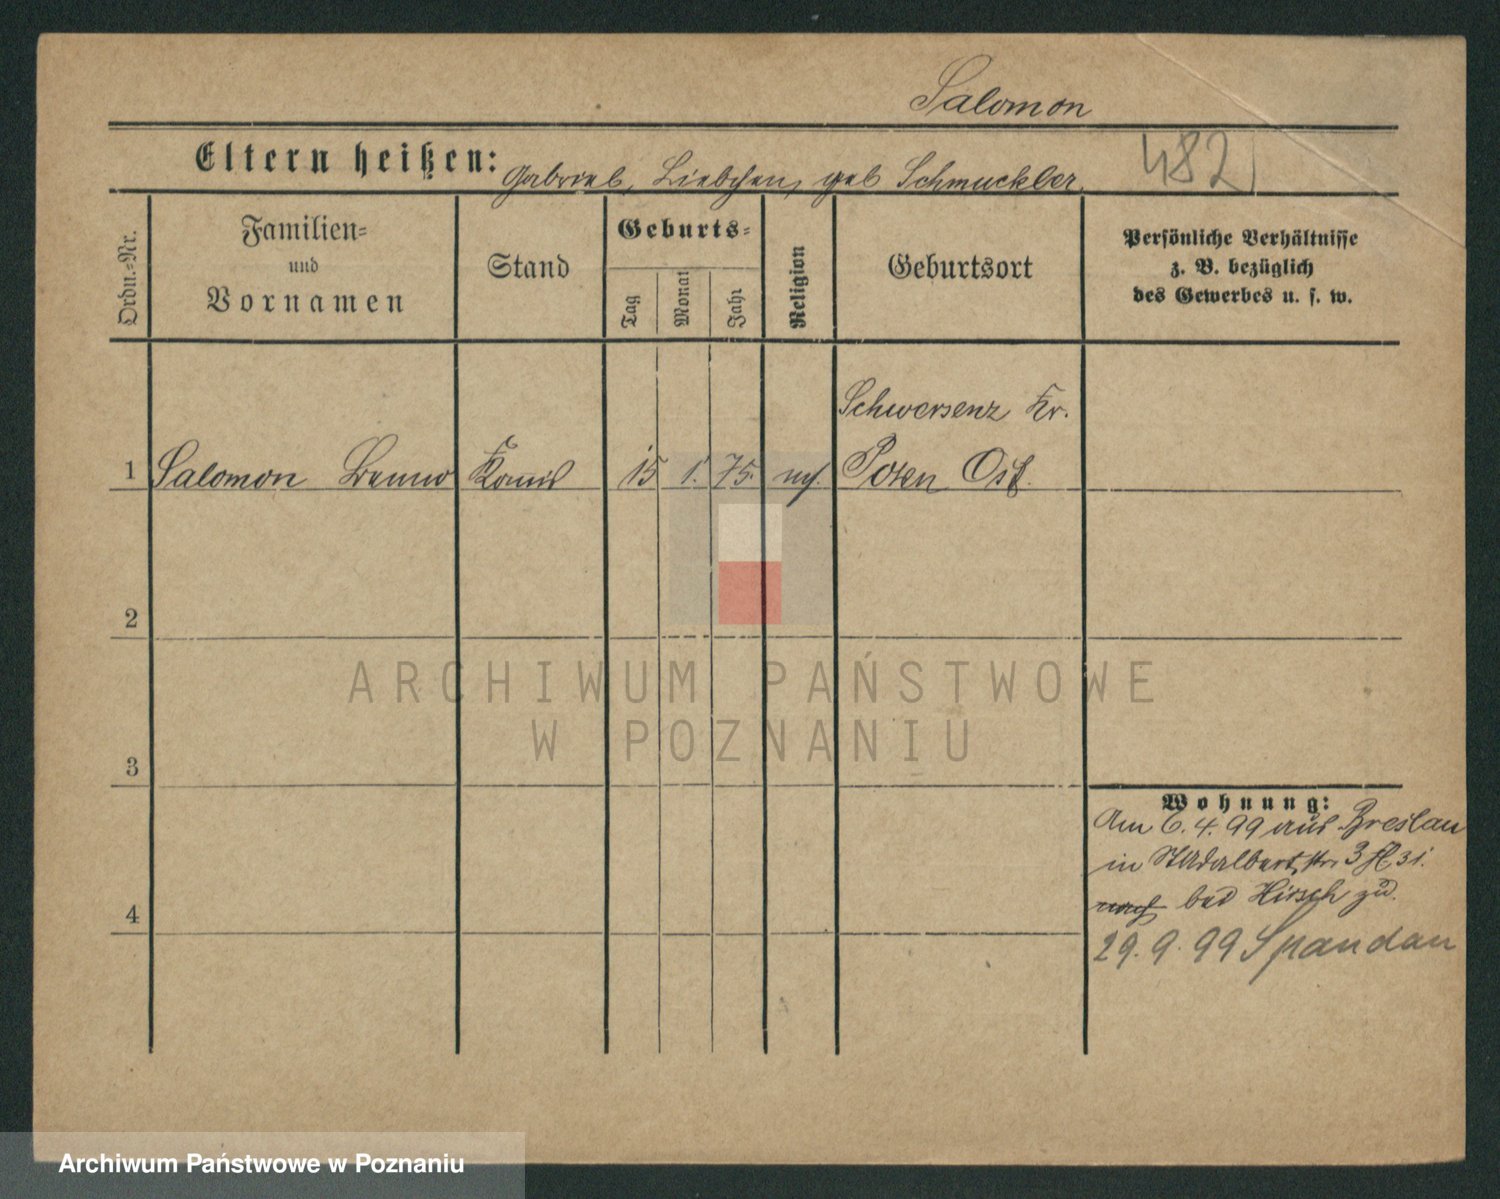 Salomon
Eltern heißen: Gabriel, Liebchen, geb Schmuckler.
482
Ordn.-Nr.
Familien-
und
Vornamen
Stand
Geburts-
Tag
Monat
Jahr
Religion
Geburtsort
Persönliche Verhältnisse
z. B. bezüglich
des Gewerbes u. s. w.
Schwersenz Kr.
1 Salomon Benno Komis 15 1. 75. Posen Ost.
2
3
4
ARCHIWUM PAŃSTWOWE
W POZNANIU
Wohnung:
Am 6. 4. 99 aus Breslau
in St Adalbertstr. 3 31.
nach bei Hirsch zu.
29. 9. 99 Spandau
Archiwum Państwowe w Poznaniu